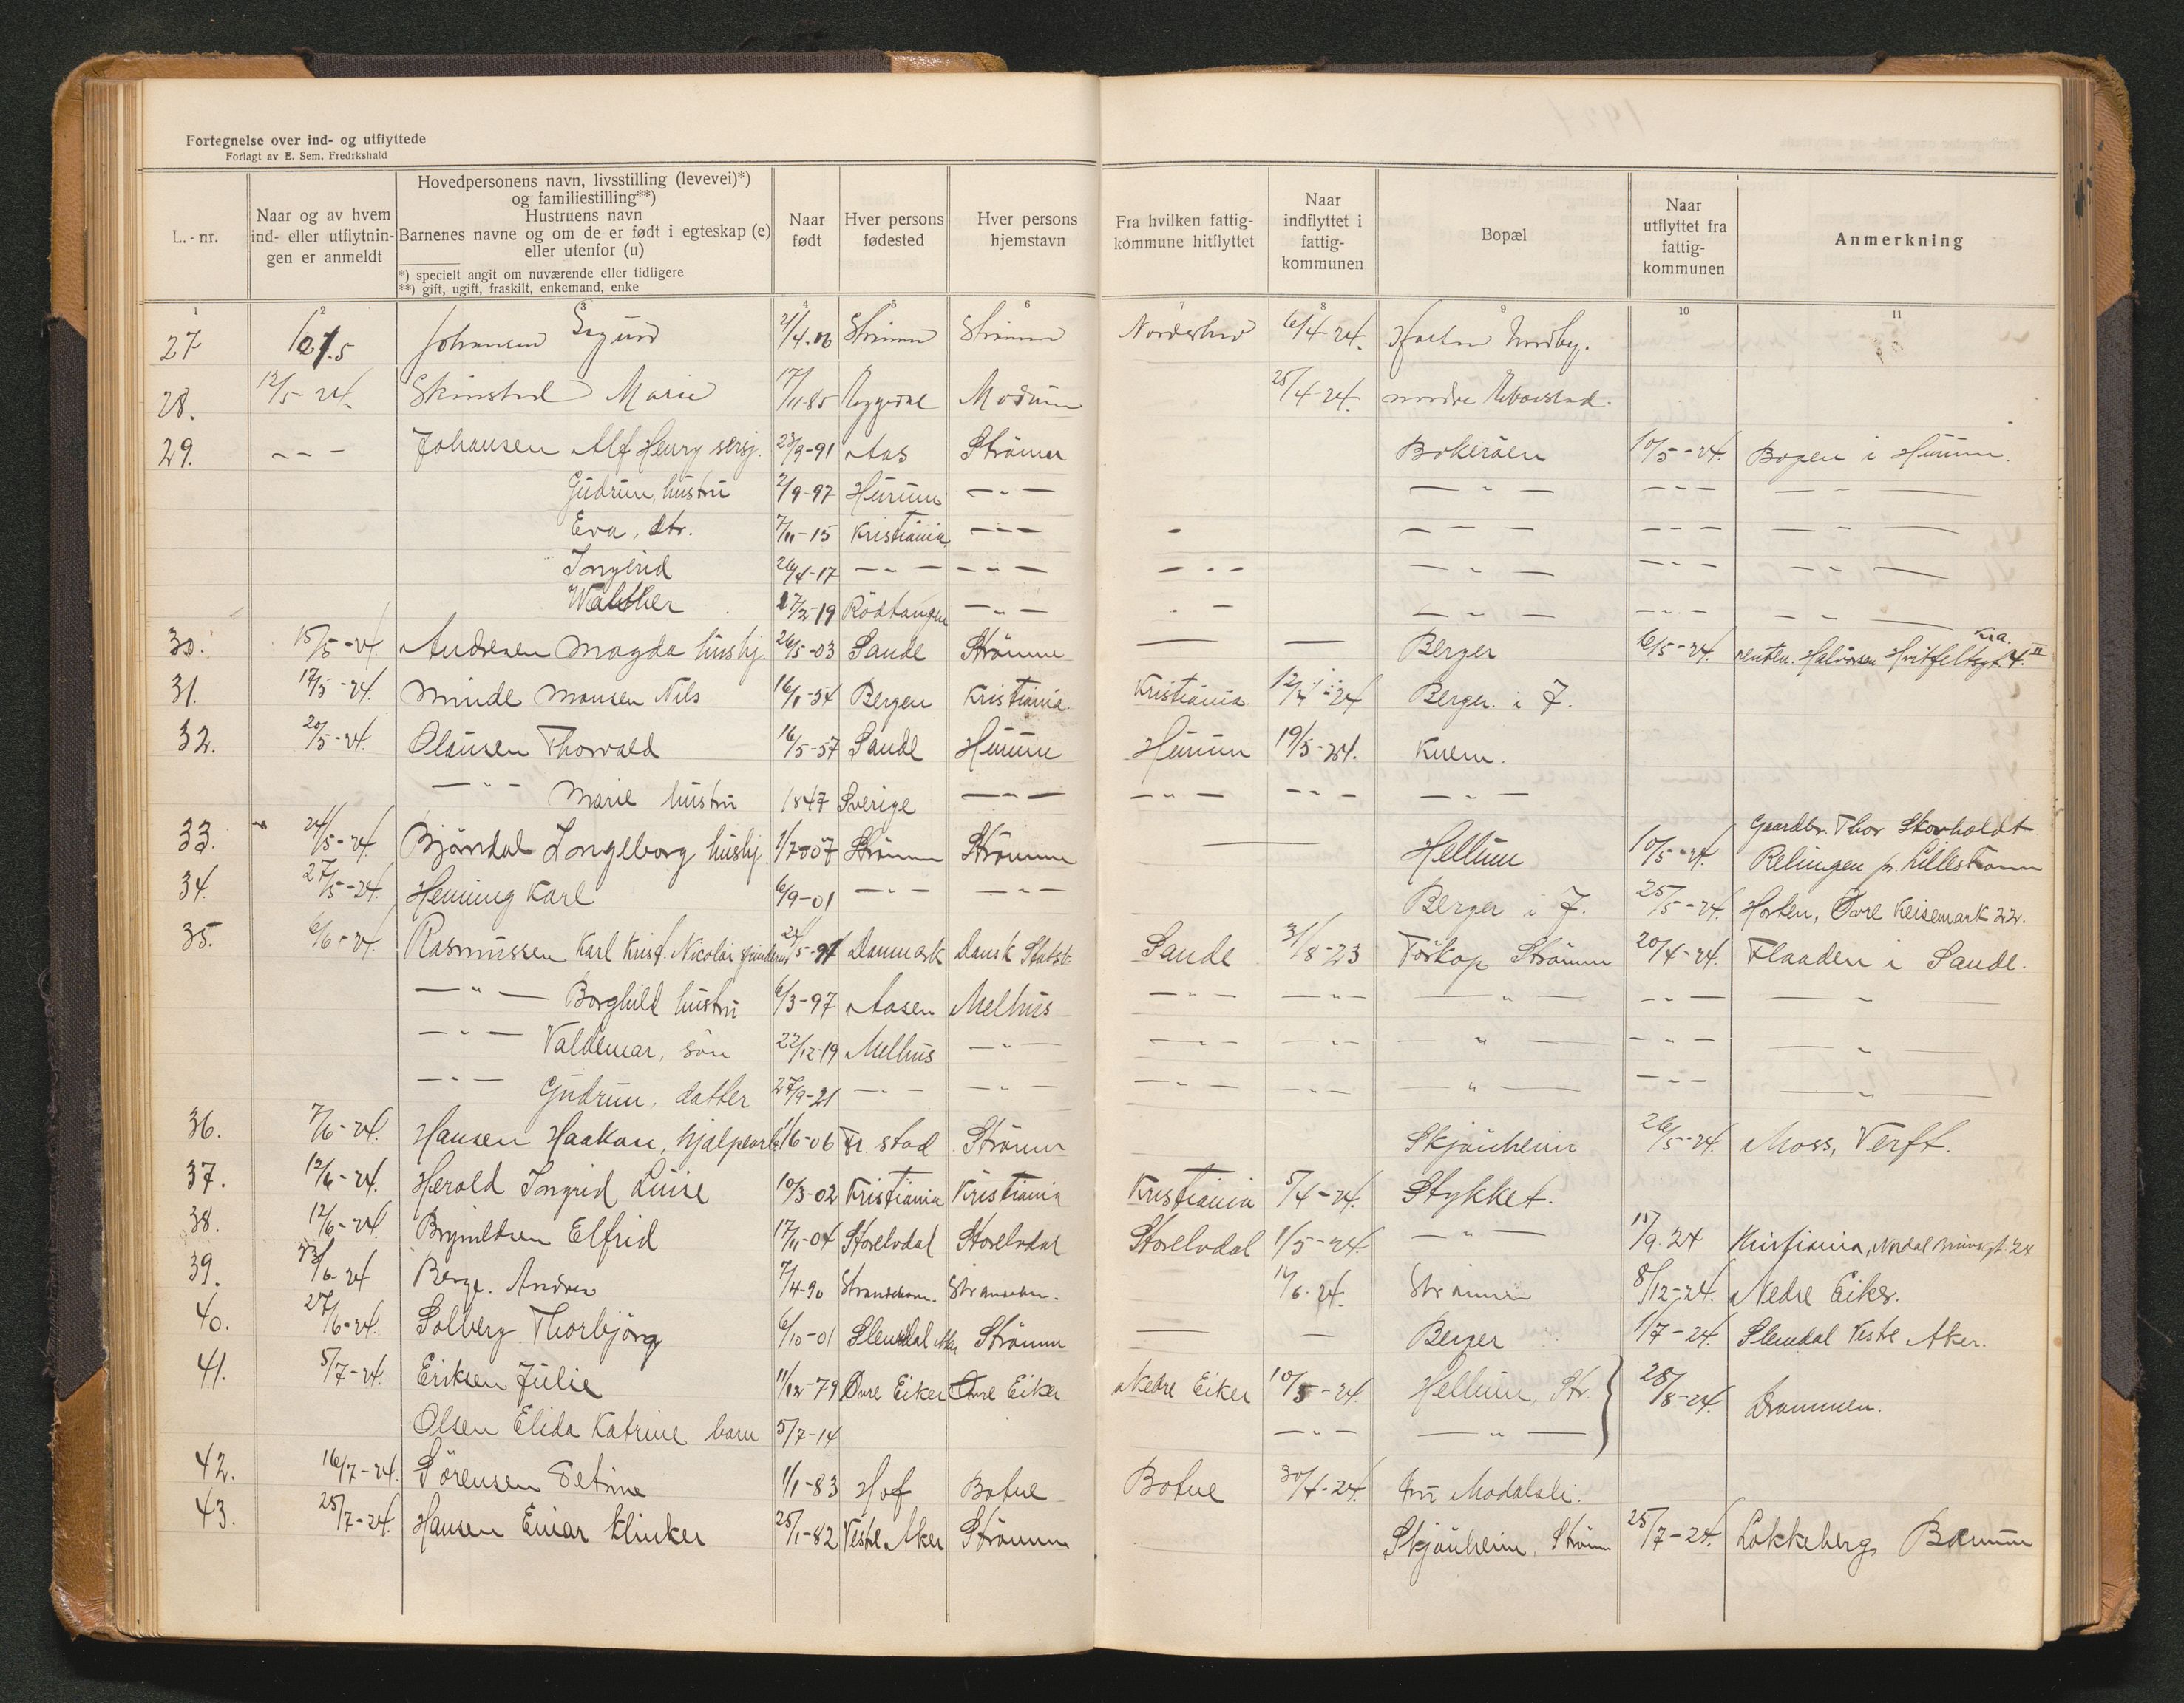 Fortegnelse over ind- og utflyttede
Forlagt av E. Sem, Fredrkshald
L.-nr.
Naar og av hvem ind- eller utflytningen er anmeldt
Hovedpersonens navn, livsstilling (levevei)*)
og familiestilling**)
Hustruens navn
Barnenes navne og om de er født i egteskap (e)
eller utenfor (u)
*) specielt angit om nuværende eller tidligere
**) gift, ugift, fraskilt, enkemand, enke
Naar født
Hver persons fødested
Hver persons hjemstavn
Fra hvilken fattigkommune hitflyttet
Naar indflyttet i fattigkommunen
Bopæl
Naar utflyttet fra fattigkommunen
Anmerkning
1 2 3 4 5 6 7 8 9 10 11
27 Johansen Sigurd 2/4.06 Strömm Strömm Norderhov 6/4-24. Nordby.
28. 12/5-24. Skinstad Marie 17/11-85 Eggedal Modum 25/4-24. nordre
29. - " - Johansen Alf Henry sersj. 23/9-91 Aas Strömm Bokeröen 10/5-24. Bogen i Hurum.
Gudrun, hustru 2/9-97 Hurum - " - - " - - " - - " -
Eva, dtr. 7/11-15 Kristiania - " - - - " - - " - - " -
Ingerid 26/4-17 - " - - " - - " - - " - - " - - " -
Walther 17/2-19 Rödtangen - " - - " - - " - - " - - " -
30. 15/5-24. Andresen Magda hushj. 26/5-03 Sande Strömm — — Berger 6/5-24. renten. Halvorsen Hvitfeltsgt. 4. II Kra.
31. 17/5-24. Minde Monsen Nils 16/1-54 Bergen Kristiania. Kristiania 12/4-24 Berger i J.
32. 20/5-24. Olausen Thorvald 16/5-57 Sande Hurum Hurum 19/5-24. Knem.
- " - Marie hustru 1847 Sverige - " - - " - - " - - " -
33. 24/5-24. Bjöndal Ingeborg hushj. 1/7-07 Strömm Strömm — Hellum 10/5-24. Gaardbr. Thor Skovholdt Relingen p. Lilleström
34. 27/5-24. Henning Karl 6/9-01 - " - - " - Berger i J. 25/5-24. Horten, Övre Keisemark 22.
35. 6/6-24. Rasmussen Karl Krist. Nicolai 24/5-91 Danmark Dansk Statsb. Sande 31/8-23 Toskop Strömm 20/4-24. Flaaden i Sande.
- " - Borghild hustru 6/3-97 Aasen Melhus - " - - " - - " - - " - - " -
- " - Valdemar, sön 22/12-19 Melhus - " - - " - - " - - " - - " - - " -
- " - Gudrun, datter 27/9-21 - " - - " - - " - - " - - " - - " - - " -
36. 7/6-24. Hansen Haakon, hjælpearb. 1/6-06 Fr. stad Strömm Skjönheim 26/5-24. Moss, Verft.
37. 12/6-24. Herold Ingrid Luise 10/3-02 Kristiania Kristiania Kristiania 5/4-24. Stykket.
38. 12/6-24. Brynildsen Elfrid 17/11-04 Storelvdal Storelvdal Storelvdal 1/5-24. - " - 15/9.24 Kristiania, Nordal Brunsgt. 24
39. 23/6-24 Berge. Andrea 7/4-90 14/6-24. Strömm 8/12-24. Nedre Eiker.
40. 27/6-24. Solberg Thorbjörg 6/10-01 Slemdal Aker Strömm — — Berger 1/7-24. Slemdal Vestre Aker.
41. 5/7-24. Eriksen Julie 11/12-79 Övre Eiker Övre Eiker Nedre Eiker 10/5-24. Hellum, Str. 28/8-24. Drammen.
Olsen Elida Katrine barn 5/7-14 - " - - " -
42. 16/7-24. Sörensen Petrine 1/1-83 Hof Botne Botne 30/4-24.
43. 25/7-24. Hansen Einar Klinker 25/1-82 Vestre Aker Strömm Skjönheim, Strömm 25/7-24. Lökkeberg, Bærum